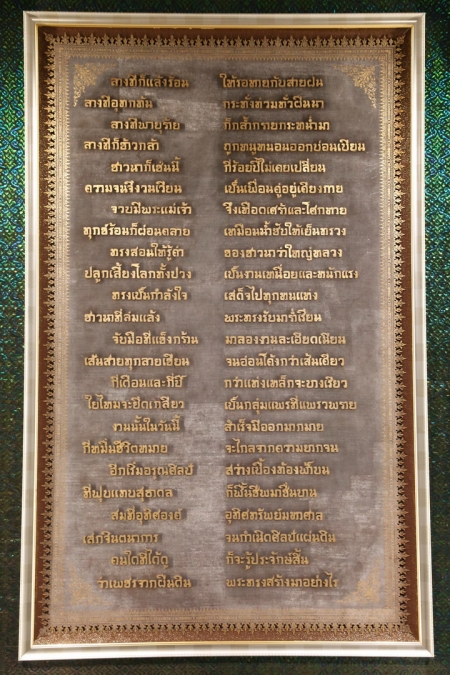 ลางทีก็แล้งร้อน ให้รอหายกับสายฝน
ลางทีอุทกท้น กระทั่งท่วมทั่วผืนนา
ลางทีพายุร้าย ก็กล้ำกรายกระหน่ำมา
ลางทีก็ข้าวกล้า ถูกหนูหนอนออกบ่อนเบียน
ชาวนาก็เช่นนี้ กี่ร้อยปีไม่เคยเปลี่ยน
ความจนจึ่งวนเวียน เป็นเพื่อนคู่อยู่เคียงกาย
จวบมีพระแม่เจ้า จึงเหือดเศร้าและโศกหาย
ทุกข์ร้อนก็ผ่อนคลาย เหมือนน้ำซับให้เย็นทรวง
ทรงสอนให้รู้ค่า ของชาวนาว่าใหญ่หลวง
ปลูกเลี้ยงโลกทั้งปวง เป็นงานเหนื่อยและหนักแรง
ทรงเป็นกำลังใจ เสด็จไปทุกหนแห่ง
ชาวนาที่ล่มแล้ง พระทรงรับมาร่ำเรียน
จับมือที่แข็งกร้าน มาลองงานละเอียดเนียน
เส้นสายทุกลายเขียน จนอ่อนโค้งกว่าเส้นเคียว
กี่เดือนและกี่ปี กว่าแท่งเหล็กจะบางเรียว
ใยไหมจะยืดเกลียว เป็นกลุ่มแพรที่แพรวพราย
งานนั้นในวันนี้ สำเร็จมีออกมากมาย
กี่หมื่นชีวิตหมาย จะไกลจากความยากจน
อีกเริ่มอรุณศิลป์ สว่างเบื้องท้องฟ้าบน
ที่ฟุบแทบสุธาดล ก็ฟื้นชีพมาชื่นบาน
สมที่อุทิศองค์ อุทิศทรัพย์มหาศาล
เสกจินตนาการ จนกำเนิดศิลป์แผ่นดิน
คนใดที่ได้ดู ก็จะรู้ประจักษ์สิ้น
ว่าเพชรจากผืนดิน พระทรงสร้างมาอย่างไร